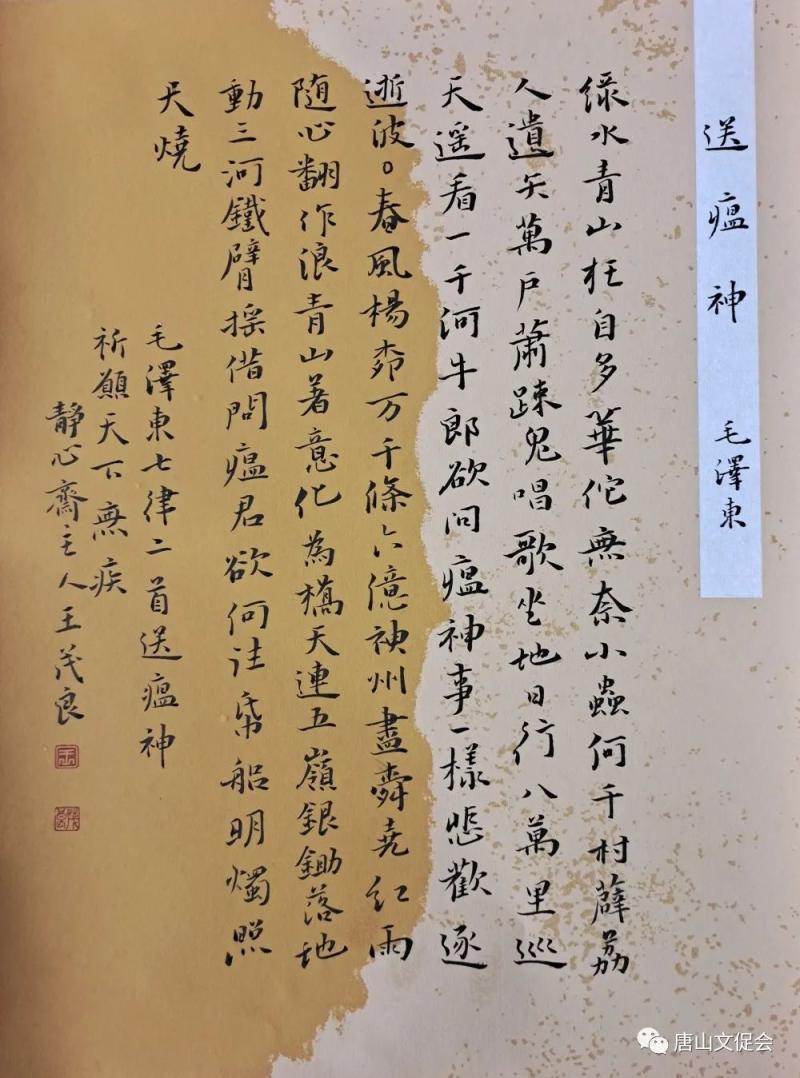 送瘟神 毛澤東
綠水青山枉自多華佗無奈小蟲何千村薜荔
人遺矢萬户蕭踈鬼唱歌坐地日行八萬里巡
天遥看一千河牛郎欲问瘟神事一樣悲歡逐
逝波。春風楊柳万千條六億神州盡舜尧红雨
随心翻作浪青山著意化為橋天連五嶺銀鋤落地
動三河鐵臂摇借問瘟君欲何往帋船明燭照
天燒
毛澤東七律二首送瘟神
祈願天下無疾
静心齋主人王茂良
唐山文促会